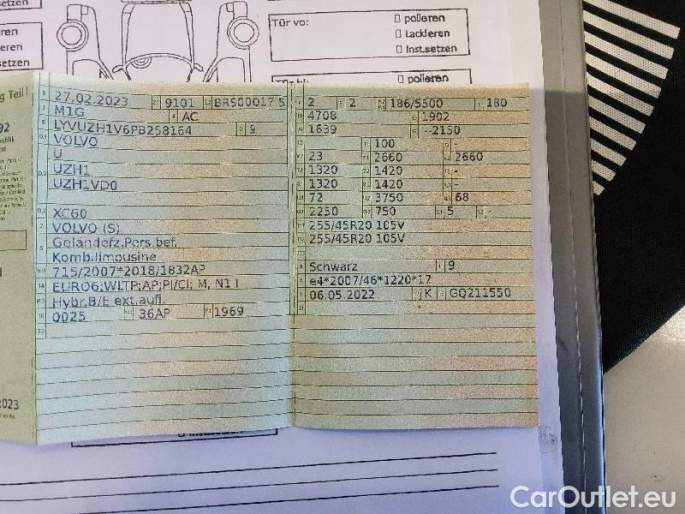 setzen
ieren
ieren
setzen
Tür vo:
polieren
Lackieren
Inst.setzen
polieren
g Teil I
27.02.2023 9101 BRS00017 5
M1G AC
LYVUZH1V6PB258164 9
VOLVO
U
UZH1
UZH1VD0
XC60
VOLVO (S)
Geländefz.Pers.bef.
Kombilimousine
715/2007*2018/1832AP
EURO6;WLTP;AP;PI/CI; M, N1 I
Hybr.B/E ext.aufl.
0025 36AP 1969
2 2 186/5500 180
4708 1902
1639 --2150
100 -
23 2660 2660
1320 1420 -
1320 1420 -
72 3750 68
2250 750 5 -
255/45R20 105V
255/45R20 105V
Schwarz 9
e4*2007/46*1220*17
06.05.2022 K GQ211550
92
2023
CarOutlet.eu